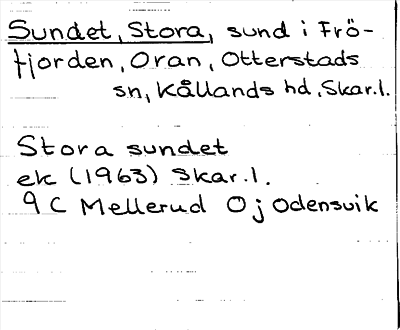 Sundet, Stora, sund i Frö-
fjorden, Oran, Otterstads
sn, Kållands hd, Skar.l.
Stora sundet
ek (1963) Skar.l.
9 C Mellerud 0 j Odensvik